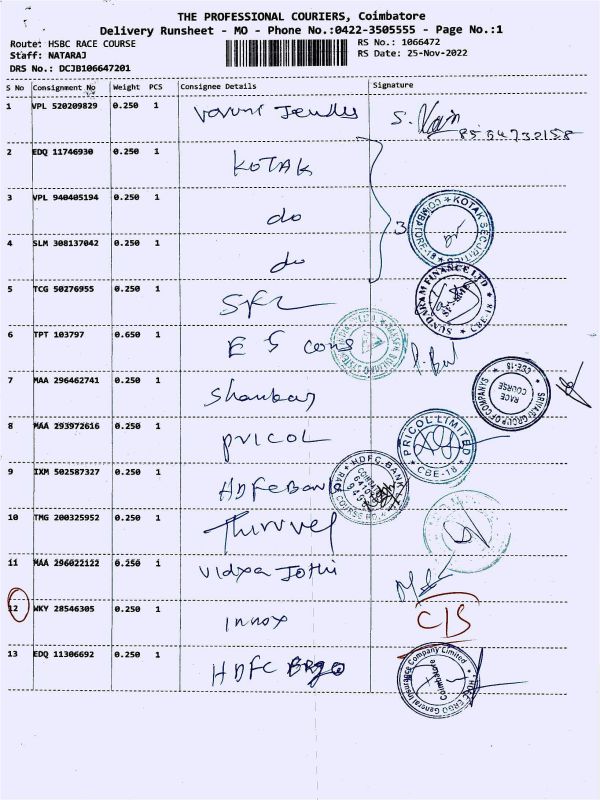 THE PROFESSIONAL COURIERS, Coimbatore
Delivery Runsheet - MO - Phone No.:0422-3505555 - Page No.:1
Route: HSBC RACE COURSE RS No.: 1066472
Staff: NATARAJ RS Date: 25-Nov-2022
DRS No.: DCJB106647201
S No Consignment No Weight PCS Consignee Details Signature
1 VPL 520209829 0.250 1
2 EDQ 11746930 0.250 1 KOTAK
3 VPL 940405194 0.250 1 do 3 KOTAK SECURI COIMBATORE-18
4 SLM 308137042 0.250 1 do
5 TCG 50276955 0.250 1 SFL SUNDARAM FINANCE LTD
6 TPT 103797 0.650 1 E S cons
7 MAA 296462741 0.250 1 Shankar GROUP OF COMPANYS RACE COURSE CBE-18
8 MAA 293972616 0.250 1 PRICOL PRICOL LIMITED CBE-18
9 IXM 502587327 0.250 1 HDFC Bank HDFC BANK RACE COURSE RD
10 TMG 200325952 0.250 1
11 MAA 296022122 0.250 1 Vidya Jothi
12 WKY 28546305 0.250 1 Innox C/S
13 EDQ 11306692 0.250 1 HDFC Ergo HDFC ERGO General Insurance Company Limited Coimbatore